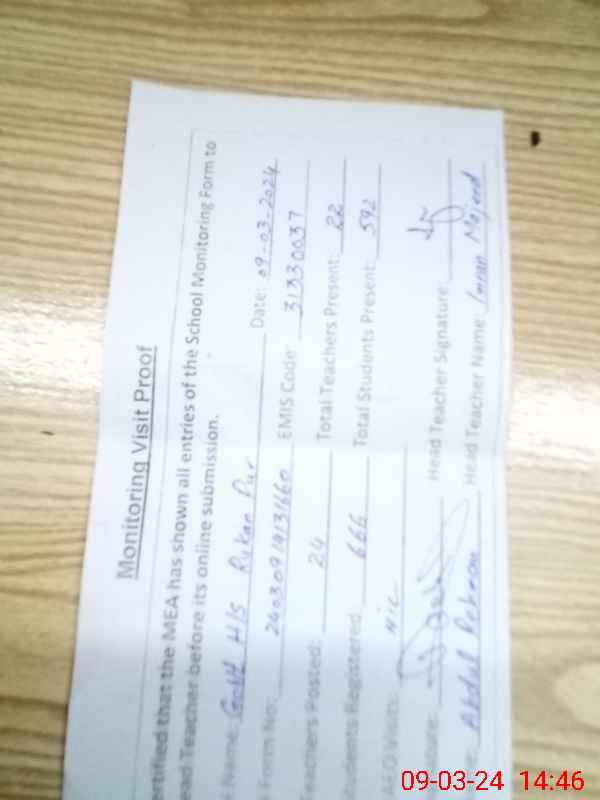 Monitoring Visit Proof
ertified that the MEA has shown all entries of the School Monitoring Form to
ead Teacher before its online submission.
Name: GoHt H/S Rukan Pur Date: 09-03-2024
Form No: EMIS Code: 31330037
eachers Posted: 24 Total Teachers Present: 22
tudents Registered: 666 Total Students Present: 592
AEO Visits: Nic
ature: Head Teacher Signature:
Abdul Rehman Head Teacher Name: Imran Majeed
09-03-24 14:46